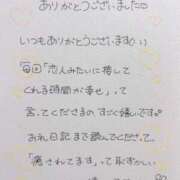 ありがとうございました
いつもありがとうございます(^^)
毎回「恋人みたいに接して
くれる時間が幸せ」って
言ってくださるの すごく嬉しいです。
お礼日記まで読んでくださって、
「癒されてます」って恥ずかしい